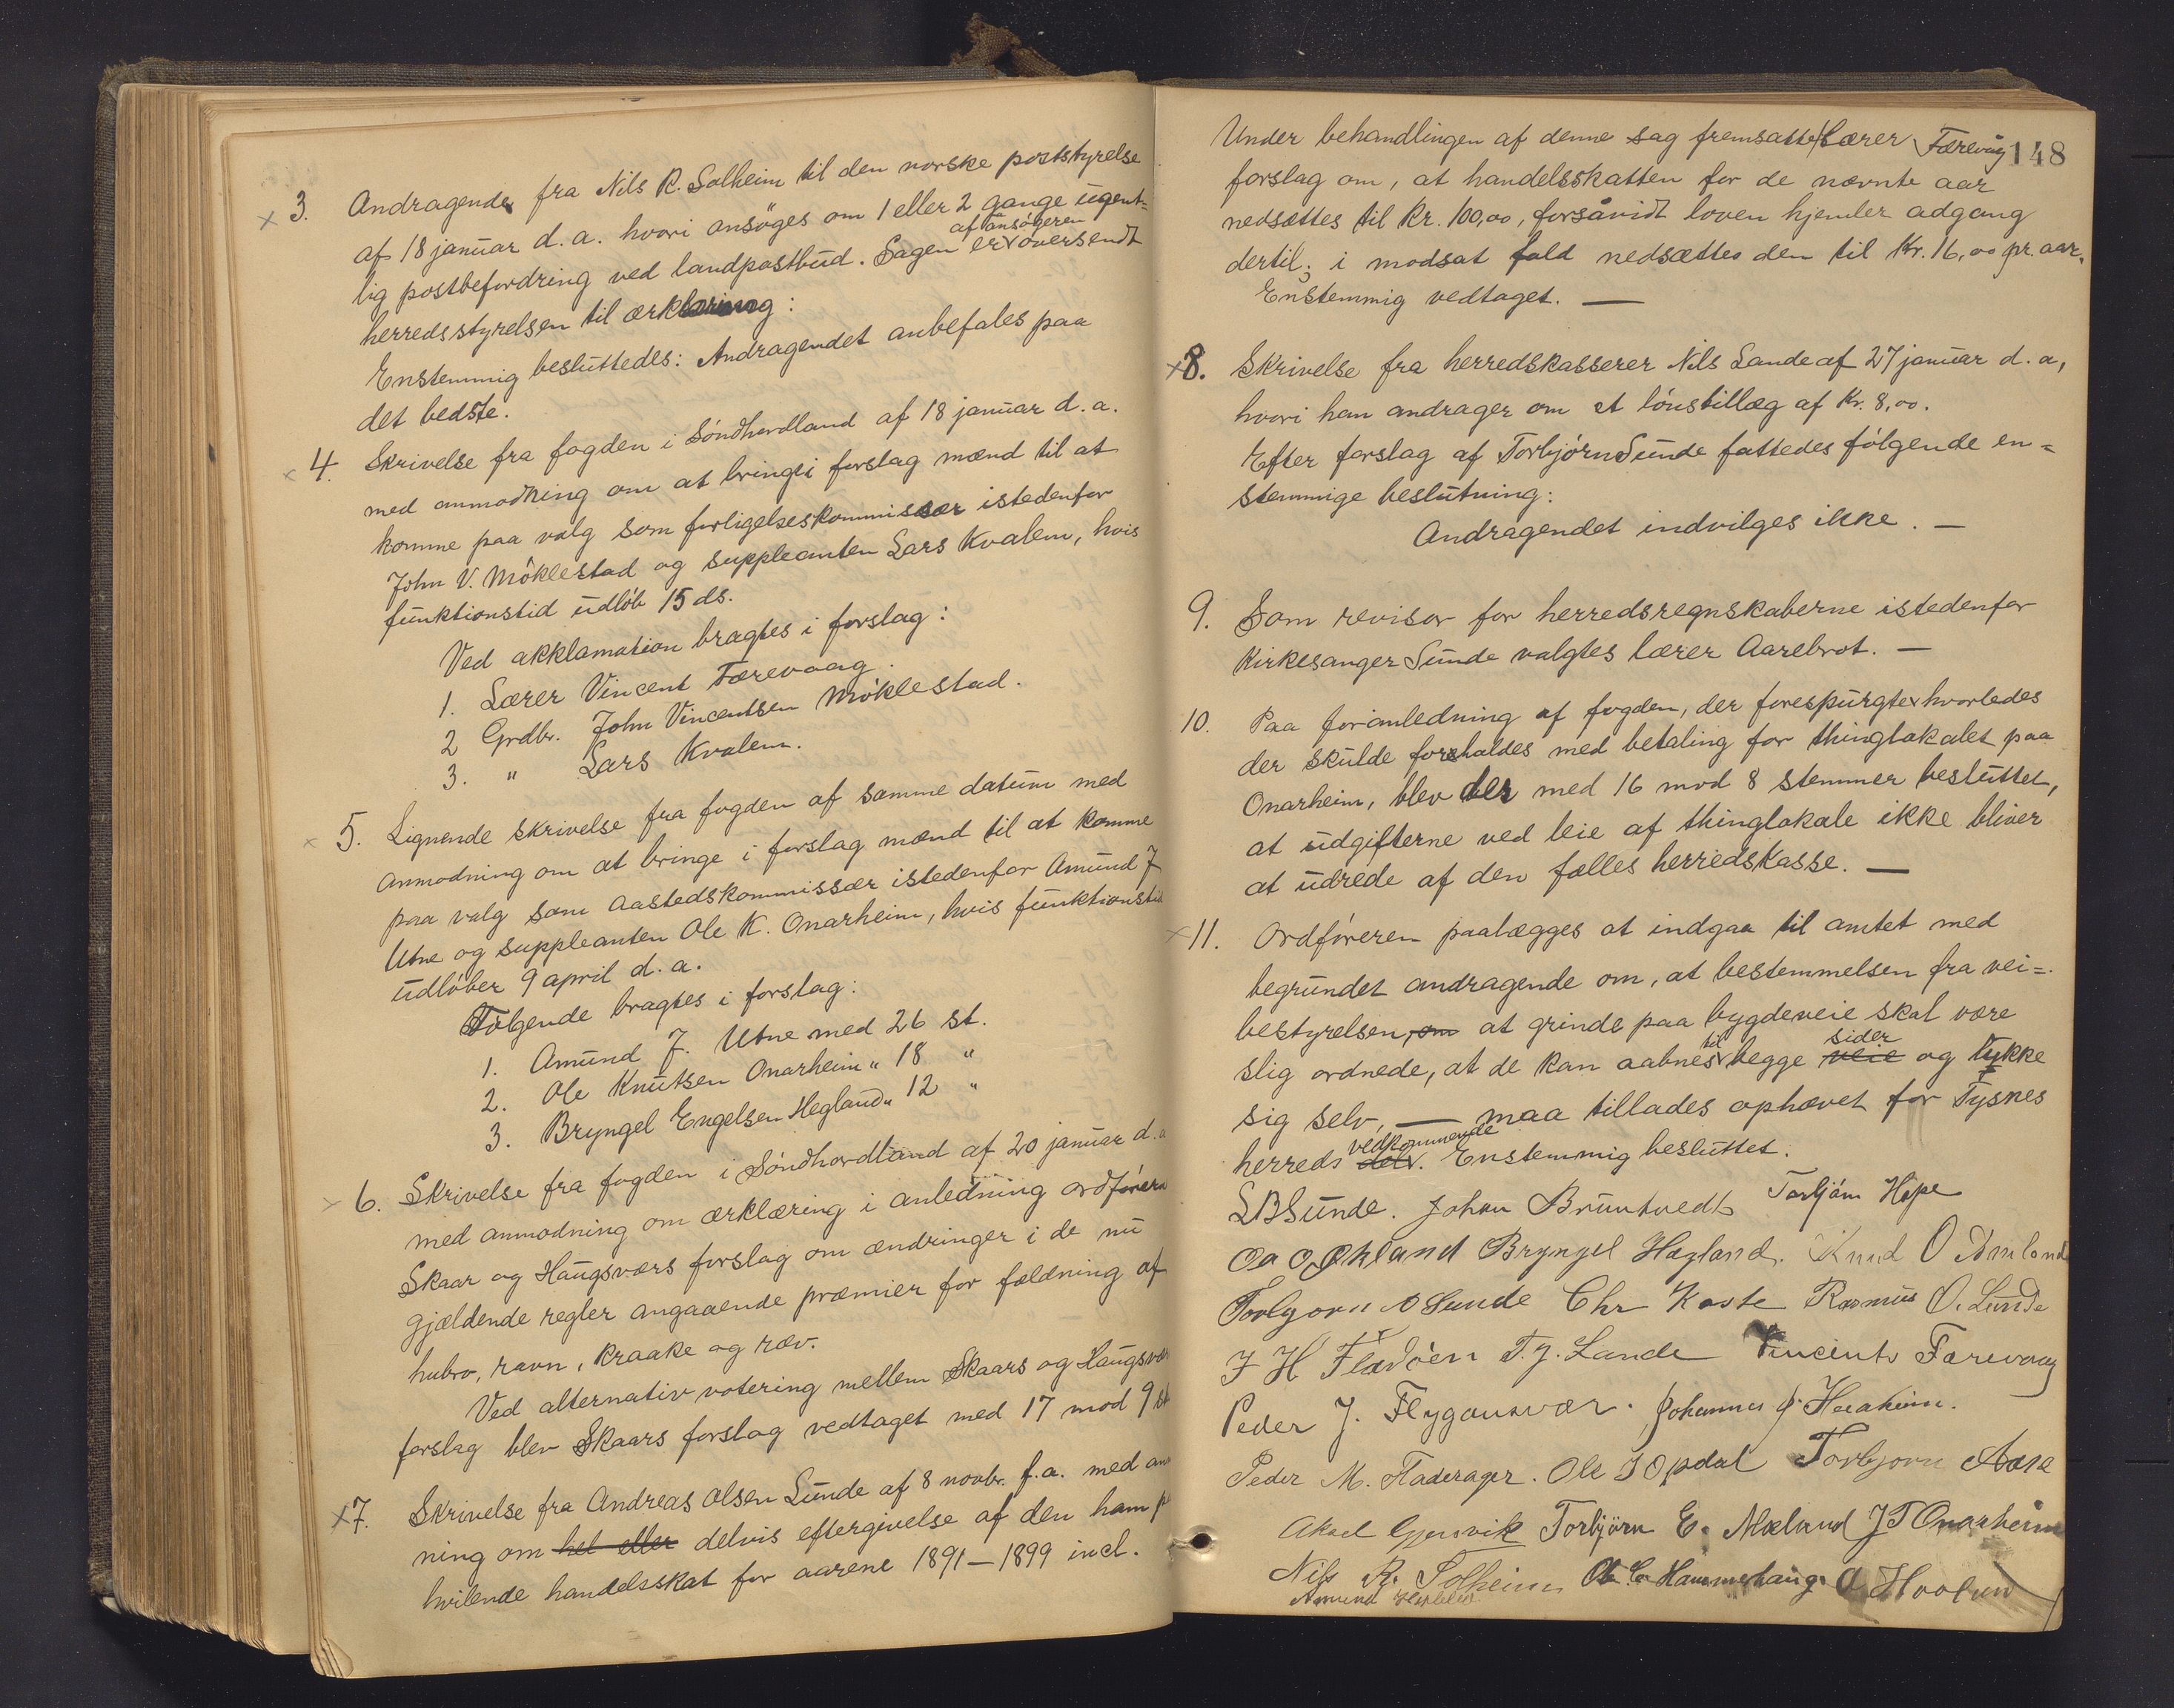 x 3. Andragende fra Nils R. Solheim til den norske poststyrelse
af 18 januar d.a. hvori ansöges om 1 eller 2 gange ugent=
af ansögeren
lig postbefordring ved landpostbud. Sagen er v oversendt
herredsstyrelsen til erklæring:
Enstemmig besluttedes: Andragendet anbefales paa
det bedste.
x 4. Skrivelse fra fogden i Söndhordland af 18 januar d.a.
med anmodning om at bringe i forslag mænd til at
komme paa valg som forligelseskommissær istedenfor
John V. Möklestad og suppleanten Lars Kvalem, hvis
funktionstid udløb 15 ds.
Ved akklamation bragtes i forslag:
1. Lærer Vincent Færevaag.
2 Grdbr. John Vincentsen Möklestad.
3. " Lars Kvalem.
x 5. Lignende skrivelse fra fogden af samme datum med
anmodning om at bringe i forslag mænd til at komme
paa valg som aastedskommissær istedenfor Amund J
Utne og suppleanten Ole K. Onarheim, hvis funktionstid
udløber 9 april d.a.
Følgende bragtes i forslag:
1. Amund J. Utne med 26 st.
2. Ole Knutsen Onarheim " 18 "
3. Bryngel Engelsen Hegland " 12 "
x 6. Skrivelse fra fogden i Söndhordland af 20 januar d.a
med anmodning om erklæring i anledning ordføreren
Skaar og Haugsværs forslag om ændringer i de nu
gjældende regler angaaende præmier for fældning af
hubro, ravn, kraake og ræv.
Ved alternativ votering mellem Skaars og Haugsvær
forslag blev Skaars forslag vedtaget med 17 mod 9 st
x 7. Skrivelse fra Andreas Olsen Lunde af 8 novbr. f.a. med an
ning om hel eller delvis eftergivelse af den ham p
hvilende handelsskat for aarene 1891–1899 incl.
148
Under behandlingen af denne sag fremsatte lærer Færevåg
forslag om, at handelsskatten for de nævnte aar
nedsættes til Kr. 100,00, forsåvidt loven hjemler adgang
dertil; i modsat fald nedsættes den til Kr. 16,00 pr. aar.
Enstemmig vedtaget. —
x 8. Skrivelse fra herredskasserer Nils Lande af 27 januar d.a,
hvori han andrager om et lønstillæg af Kr. 8,00.
Efter forslag af Torbjørn Sunde fattedes følgende en=
stemmige beslutning:
Andragendet indvilges ikke. —
9. Som revisor for herredsregnskaberne istedenfor
Kirkesanger Sunde valgtes lærer Aarebrot. —
10. Paa foranledning af fogden, der forespurgte hvorledes
der skulde forholdes med betaling for thinglokalet paa
Onarheim, blev der med 16 mod 8 stemmer besluttet,
at udgifterne ved leie af thinglokale ikke bliver
at udrede af den fælles herredskasse. —
x 11. Ordføreren paalægges at indgaa til amtet med
begrundet andragende om, at bestemmelsen fra vei=
bestyrelsen, om at grinde paa bygdeveie skal være
til sider
slig ordnede, at de kan aabnes v begge veie og lukke
sig selv, — maa tillades ophævet for Tysnes
vedkommende
herreds del v. Enstemmig besluttet.
LBSunde. Johan Bruntvedt Torbjørn Hope
Oa O Økland Bryngel Hægland. Knud O Amland
Torbjørn O Sunde Chr Koste Rasmus O. Lunde
J H Fladöen T. J. Lande Vincent Færevaag
Peder J. Flygansvær. Johannes J. Heraheim.
Peder M. Fladerager. Ole J Opdal Torbjørn Aase
Aksel Gjersvik Torbjörn E. Mæland J T Onarheim
Nils R. Solheim Ole C. Hammerhaug
Amund